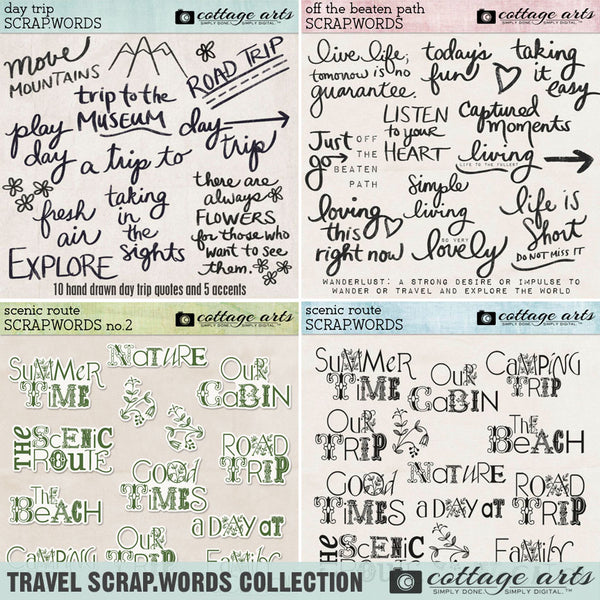 day trip
SCRAP.WORDS
cottage arts
SIMPLY DONE. SIMPLY DIGITAL.™
move
MOUNTAINS
ROAD TRIP
trip to the
MUSEUM
play
day
day
trip
a trip to
fresh
air
taking
in
the
sights
there are
always
FLOWERS
for those who
want to see
them.
EXPLORE
10 hand drawn day trip quotes and 5 accents
off the beaten path
SCRAP.WORDS
cottage arts
SIMPLY DONE. SIMPLY DIGITAL.™
live life;
tomorrow is no
guarantee.
today's
fun
taking
it easy
LISTEN
to your
HEART
Captured
Moments
Just
go
OFF
THE
BEATEN
PATH
living
LIFE TO THE FULLEST
Simple
living
loving
this
right now
SO VERY
lovely
life is
Short
DO NOT MISS IT
WANDERLUST: A STRONG DESIRE OR IMPULSE TO
WANDER OR TRAVEL AND EXPLORE THE WORLD
scenic route
SCRAPWORDS no.2
cottage arts
SIMPLY DONE. SIMPLY DIGITAL.™
SUMMER
TIME
NATURE
OUR
CABIN
THE
SCENIC
ROUTE
ROAD
TRIP
GOOD
TIMES
THE
BEACH
A DAY AT
CAMPING
OUR
TRIP
FAMILY
scenic route
SCRAPWORDS
cottage arts
SIMPLY DONE. SIMPLY DIGITAL.™
SUMMER
TIME
OUR
CABIN
CAMPING
TRIP
OUR
TRIP
THE
BEACH
NATURE
GOOD
TIMES
ROAD
TRIP
A DAY AT
THE
SCENIC
ROUTE
FAMILY
TRAVEL SCRAP.WORDS COLLECTION
cottage arts
SIMPLY DONE. SIMPLY DIGITAL.™